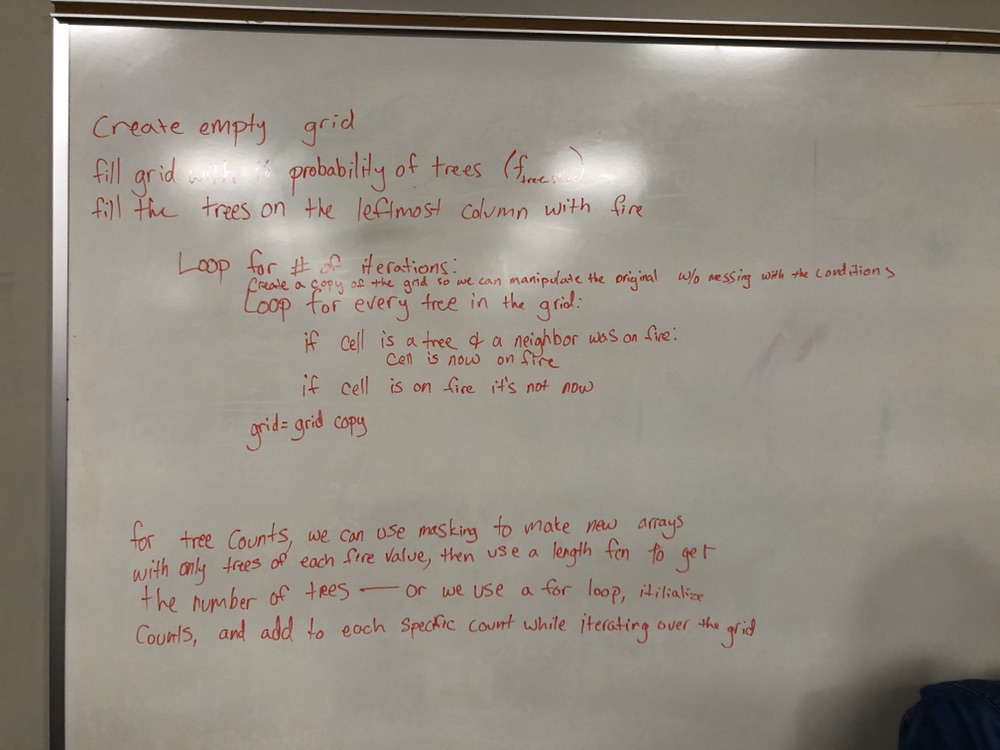 Create empty grid
fill grid with probability of trees (ftree
fill the trees on the leftmost column with fire
Loop for # of iterations:
Create a copy of the grid so we can manipulate the original w/o messing with the conditions
Loop for every tree in the grid:
if cell is a tree & a neighbor was on fire:
cell is now on fire
if cell is on fire it's not now
grid = grid copy
for tree counts, we can use masking to make new arrays
with only trees of each fire value, then use a length fcn to get
the number of trees — or we use a for loop, itilialize
counts, and add to each specific count while iterating over the grid